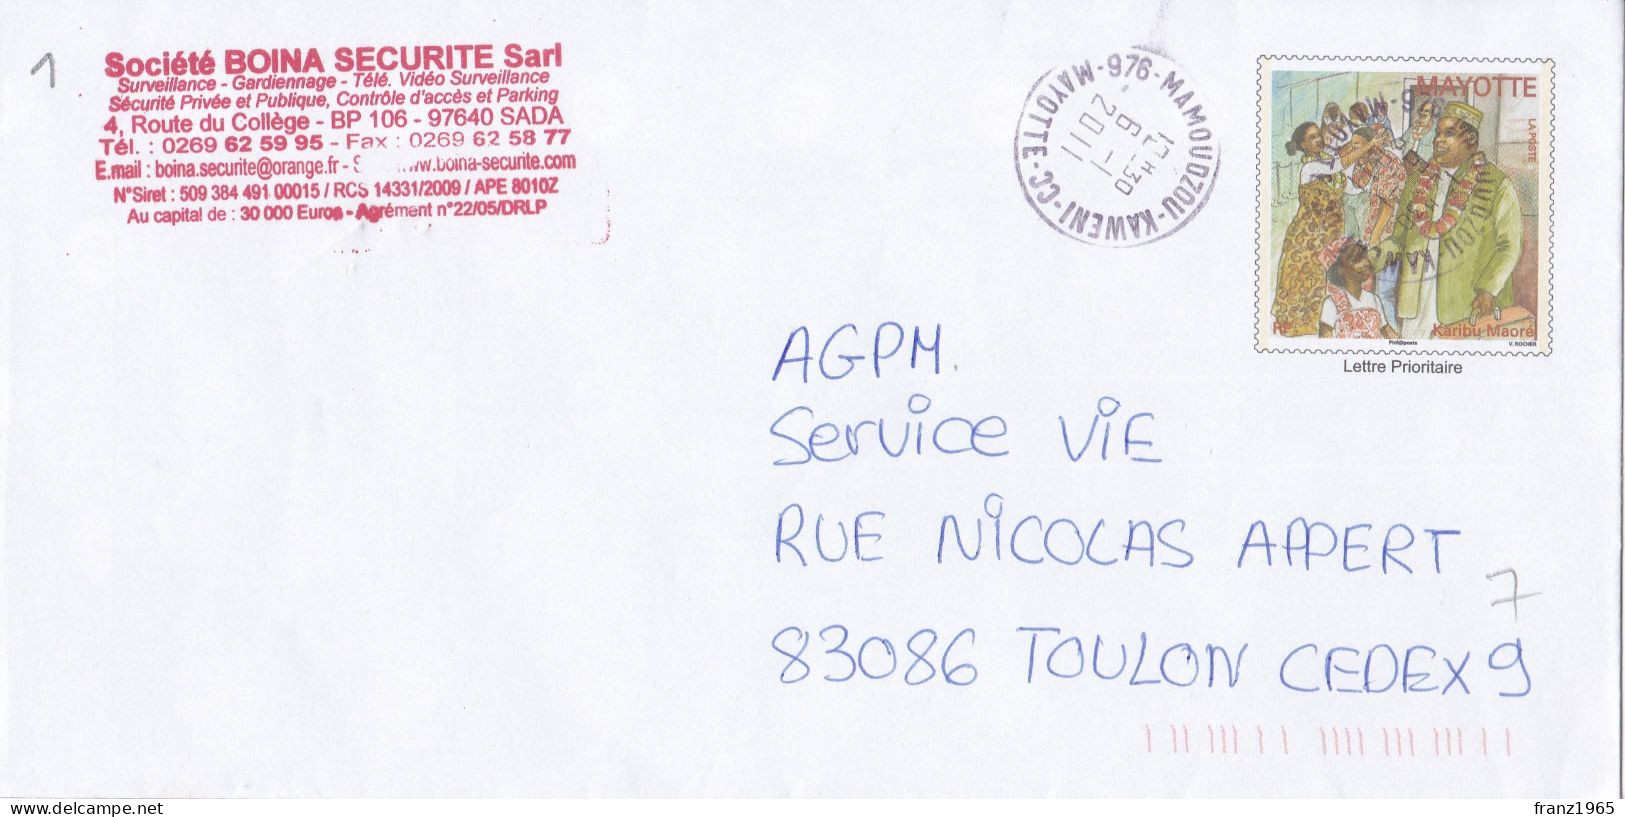 1
Société BOINA SECURITE Sarl
Surveillance - Gardiennage - Télé. Vidéo Surveillance
Sécurité Privée et Publique, Contrôle d'accès et Parking
4, Route du Collège - BP 106 - 97640 SADA
Tél. : 0269 62 59 95 - Fax : 0269 62 58 77
E.mail : boina.securite@orange.fr - S www.boina-securite.com
N°Siret : 509 384 491 00015 / RCS 14331/2009 / APE 8010Z
Au capital de : 30 000 Euros - Agrément n°22/05/DRLP
976-MAMOUDZOU-KAWENI-CC-MAYOTTE-
26-1
2011
MAYOTTE
LA POSTE
RF
Karibu Maoré
Phil@poste
V. ROCHER
Lettre Prioritaire
AGPM
Service ViE
RUE NiCOLAS APPERT
7
83086 TOULON CEDEX 9
www.delcampe.net
franz1965